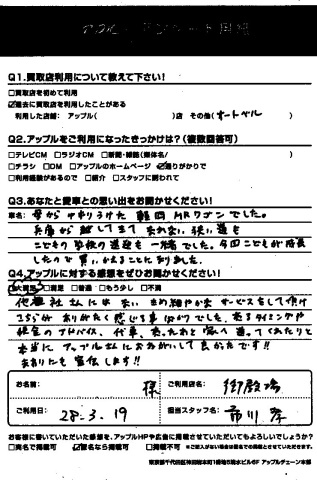 Q1.買取店利用について教えて下さい!
□買取店を初めて利用
☑過去に買取店を利用したことがある
利用した店舗:アップル( )店 その他(オートベル )
Q2.アップルをご利用になったきっかけは?(複数回答可)
□テレビCM □ラジオCM □新聞・雑誌(媒体名/ )
□チラシ □DM □アップルのホームページ ☑通りがかりで
□利用経験があるので □紹介 □スタッフに誘われて
Q3.あなたと愛車との思い出をお聞かせください!
車名:母から ゆずりうけた 軽四 MRワゴン でした。
兵庫から 越して来て 本当に 狭い道を
こどもの 学校の送迎を 一緒でした。今回こどもが成長
したので 買いかえることになりました。
Q4.アップルに対する感想をぜひお聞かせください!
☑大満足 □満足 □普通 □もう少し □不満
他社さんには ない きめ細やかな サービスをして頂け
こちらが ありがたく感じる事ばかりでした。売るタイミングや
税金のアドバイス、代車、売ったあと 家へ 送ってくれたりと
本当に アップルさんにおねがいして良かったです!!
まわりにも 宣伝します!!
お名前: 様
ご利用店名: 御殿場
ご利用日: 28.3.19
担当スタッフ名: 市川 孝
お客様に書いていただいた感想を、アップルHPや広告に掲載させていただいてもよろしいでしょうか?
□実名で掲載可 ☑匿名なら掲載可 □掲載不可 ※ご記入がない場合は匿名での掲載とさせていただきます。